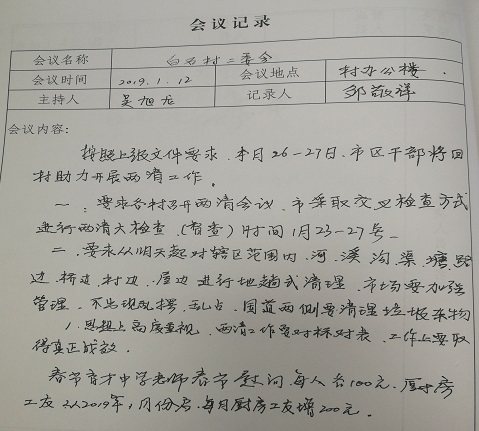 会议记录
会议名称 白石村二委会
会议时间 2019.1.12 会议地点 村办公楼.
主持人 吴旭龙 记录人 邹敬祥
会议内容:
按照上级文件要求、本月26-27日、市区干部将回
村助力开展两清工作。
一、要求各村召开两清会议、市采取交叉检查方式
进行两清大检查、(督查)时间1月23-27号
二、要求从明天起对辖区范围内、河、溪沟渠、塘、路
边、桥边、村边、屋边进行地趟式清理、市场要加强
管理、不出现乱摆、乱占、国道两侧要清理垃圾杂物
1.思想上高度重视、两清工作要对标对表、工作上要取
得真正成效。
春节育才中学老师春节慰问、每人各100元、厨房
工友从2019年1月份后、每月厨房工友增200元。